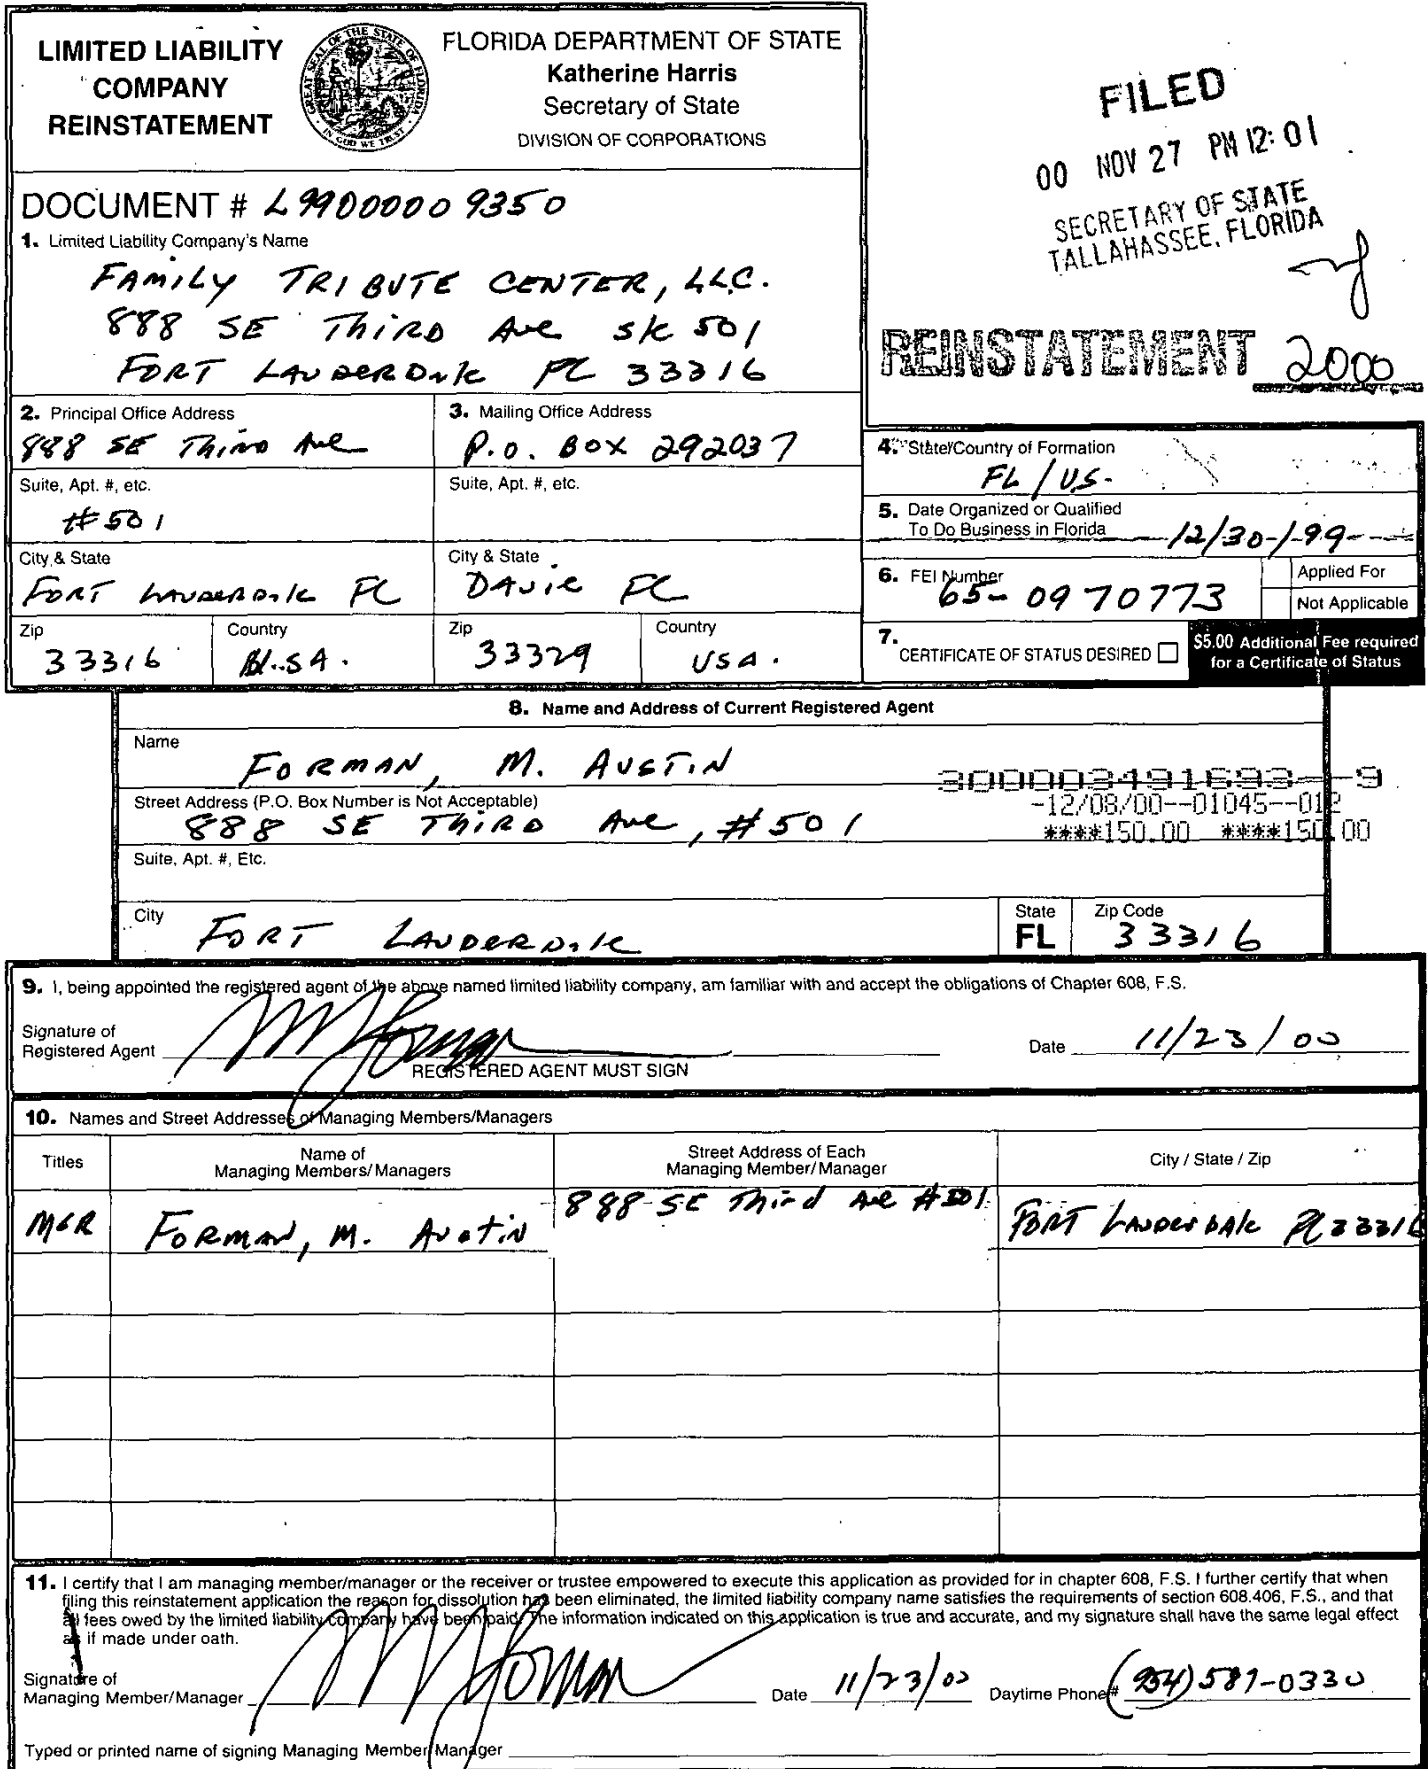 LIMITED LIABILITY
COMPANY
REINSTATEMENT
GREAT SEAL OF THE STATE OF FLORIDA
IN GOD WE TRUST
FLORIDA DEPARTMENT OF STATE
Katherine Harris
Secretary of State
DIVISION OF CORPORATIONS
FILED
00 NOV 27 PM 12:01
SECRETARY OF STATE
TALLAHASSEE, FLORIDA
REINSTATEMENT 2000
DOCUMENT # L99000009350
1. Limited Liability Company's Name
FAMILY TRIBUTE CENTER, LLC.
888 SE THIRD Ave ste 501
FORT LAUDERDALE FL 33316
2. Principal Office Address
888 SE Third Ave
Suite, Apt. #, etc.
#501
City & State
FORT LAUDERDALE FL
Zip
33316
Country
U.SA.
3. Mailing Office Address
P.O. BOX 292037
Suite, Apt. #, etc.
City & State
DAVIE FL
Zip
33329
Country
USA.
4. State/Country of Formation
FL / U.S.
5. Date Organized or Qualified
To Do Business in Florida 12/30/99
6. FEI Number
65-0970773
Applied For
Not Applicable
7.
CERTIFICATE OF STATUS DESIRED
$5.00 Additional Fee required
for a Certificate of Status
8. Name and Address of Current Registered Agent
Name
FORMAN, M. AUSTIN
Street Address (P.O. Box Number is Not Acceptable)
888 SE THIRD Ave, #501
300003491693--9
-12/08/00--01045--012
****150.00 ****150.00
Suite, Apt. #, Etc.
City
FORT LAUDERDALE
State
FL
Zip Code
33316
9. I, being appointed the registered agent of the above named limited liability company, am familiar with and accept the obligations of Chapter 608, F.S.
Signature of
Registered Agent
Date 11/23/00
REGISTERED AGENT MUST SIGN
10. Names and Street Addresses of Managing Members/Managers
Titles
Name of
Managing Members/Managers
Street Address of Each
Managing Member/Manager
City / State / Zip
MGR FORMAN, M. Austin 888 SE Third Ave #501 FORT LAUDERDALE FL 33316
11. I certify that I am managing member/manager or the receiver or trustee empowered to execute this application as provided for in chapter 608, F.S. I further certify that when
filing this reinstatement application the reason for dissolution has been eliminated, the limited liability company name satisfies the requirements of section 608.406, F.S., and that
all fees owed by the limited liability company have been paid. The information indicated on this application is true and accurate, and my signature shall have the same legal effect
as if made under oath.
Signature of
Managing Member/Manager
Date 11/23/00 Daytime Phone# (954) 587-0330
Typed or printed name of signing Managing Member/Manager